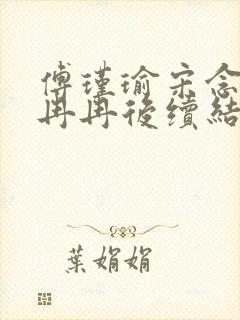 傅瑾瑜宋念
冉冉後續結
葉娟娟